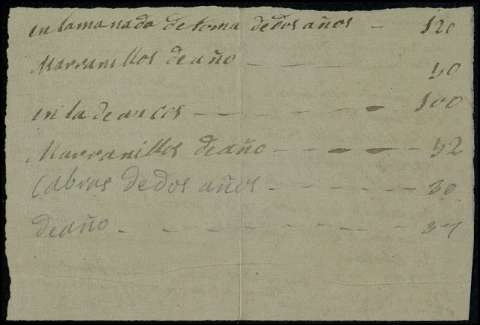 en la manada de loma de dos años — 120
Marranillos de año — 50
en la de arcos — 100
Marranillos de año — 52
Cabras de dos años — 30
de año — 37